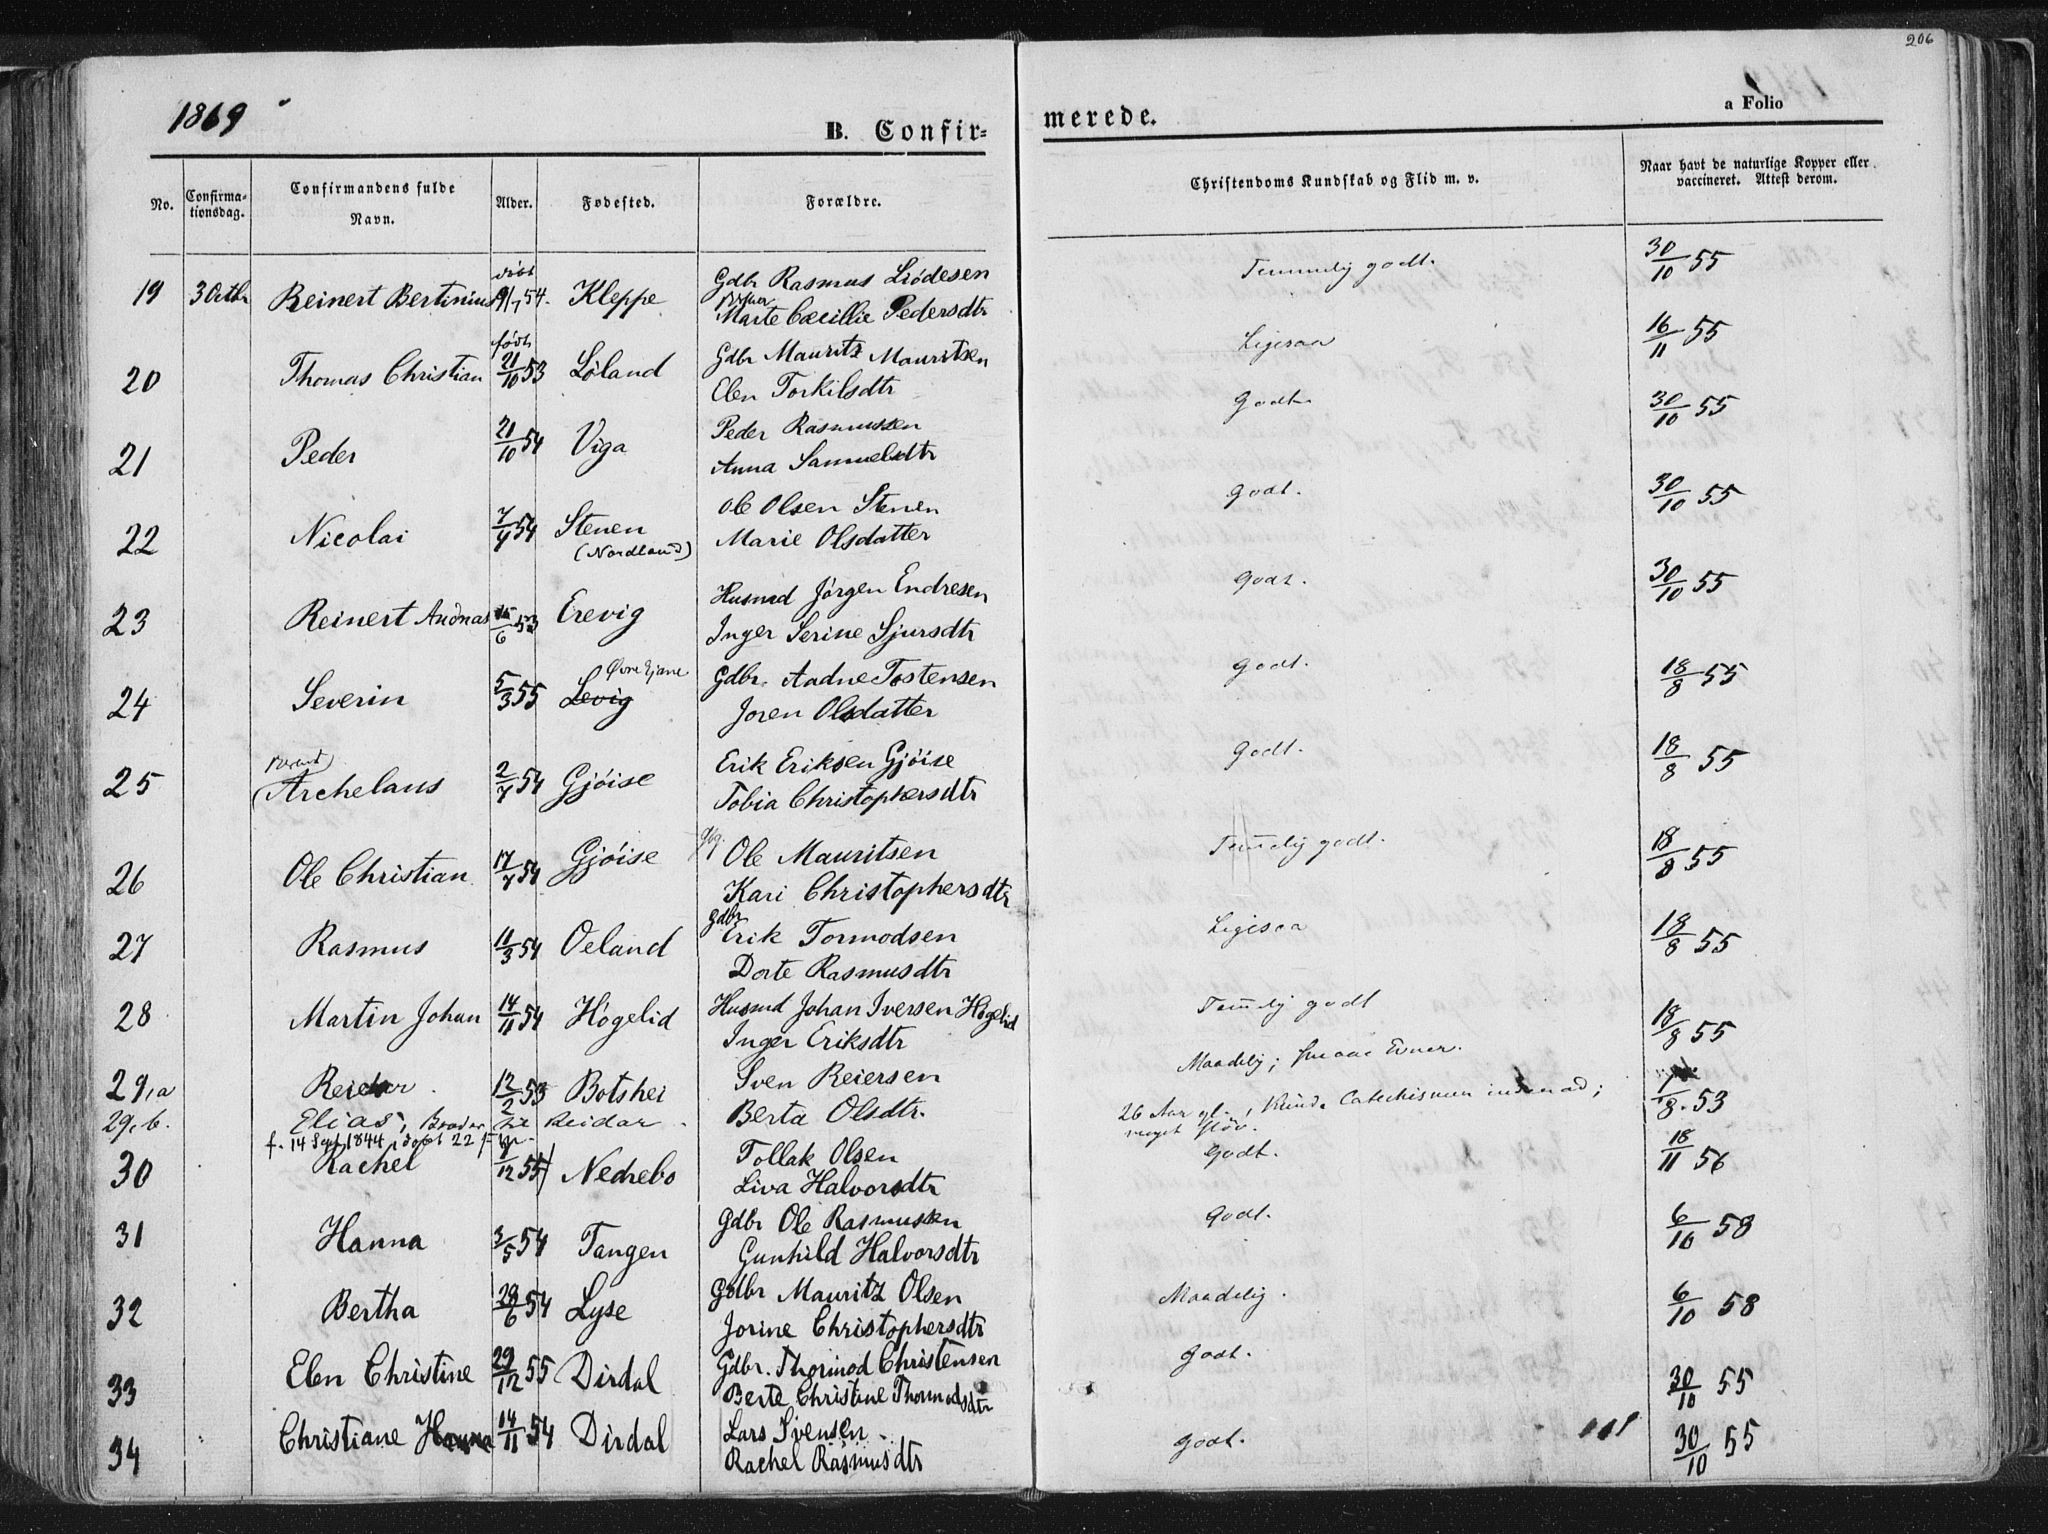 206
1869
B. Confir-
merede.
a Folio
No.
Confirma-
tionsdag.
Confirmandens fulde
Navn.
Alder.
Fødested.
Forældre.
Christendoms Kundskab og Flid m. v.
Naar havt de naturlige Kopper eller
vaccineret. Attest derom.
19 3 Octbr Reinert Bertinius døbt 9/7 54. Kleppe Gdbr Rasmus Liödesen
Marte Cæcillie Pedersdtr
Temmelig godt. 30/10 55
20 Thomas Christian født 21/10 53 Løland Gdbr Mauritz Mauritsen
Elen Torkilsdtr
Ligesaa 16/11 55
21 Peder 21/10 54 Viga Peder Rasmussen
Anna Samuelsdtr
Godt. 30/10 55
22 Nicolai 7/9 54 Stenen Ole Olsen Stenen
(Nordland) Marie Olsdatter
Godt. 30/10 55
23 Reinert Audnas 15/6 53 Erevig Husmd Jørgen Endresen
Inger Serine Sjursdtr
Godt. 30/10 55
24 Severin 5/3 55 Levig Øvre Ejane Gdbr. Aadne Tostensen
Joren Olsdatter
Godt. 18/8 55
25 (Berent)
Archelaus 2/7 54 Gjøise Erik Eriksen Gjøise
Tobia Christophersdtr
Godt. 18/8 55
26 Ole Christian 17/7 54 Gjøise Ole Mauritsen
Kari Christophersdtr
Temelig godt. 18/8 55
27 Rasmus 11/3 54 Oeland Gdbr Erik Tormodsen
Dorte Rasmusdtr
Ligesaa 18/8 55
28 Martin Johan 14/11 54 Høgelid Husmd Johan Iversen Høgelid
Inger Eriksdtr
Temelig godt 18/8 55
29,a Reidar 12/2 53 Botshei Sven Reiersen
Berta Olsdtr.
Maadelig; smaae Evner. 1/8. 53
29,b. Elias, Broder til Reidar.
f. 14 Sept 1844, døbt 22
26 Aar gl., Kunde Catechismen indenad;
meget sløv.
30 Rachel 4/12 55 Nedrebø Tollak Olsen
Liva Halvorsdtr
Godt. 18/11 56
31 Hanna 3/5 54 Tangen Gdbr Ole Rasmussen
Gunhild Halvorsdtr
Godt. 6/10 58
32 Bertha 28/6 54 Lyse Gdbr Mauritz Olsen
Jorine Christophersdtr
Maadelig. 6/10 58
33 Elen Christine 29/12 55 Dirdal Gdbr. Thormod Christensen
Berte Christine Thormodsdtr
Godt. 30/10 55
34 Christiane Hanna 14/11 54 Dirdal Lars Svensen
Rachel Rasmusdtr
Godt. 30/10 55